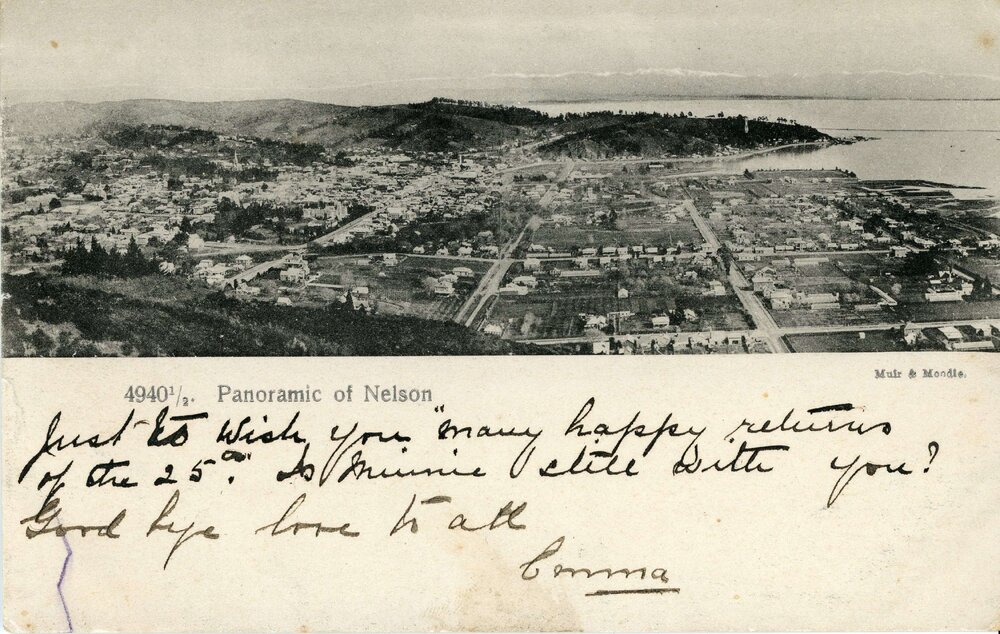 Muir & Moodie.
4940½. Panoramic of Nelson
Just to wish you "many happy returns
of the 25". Is Minnie still with you?
Good bye love to all
Emma